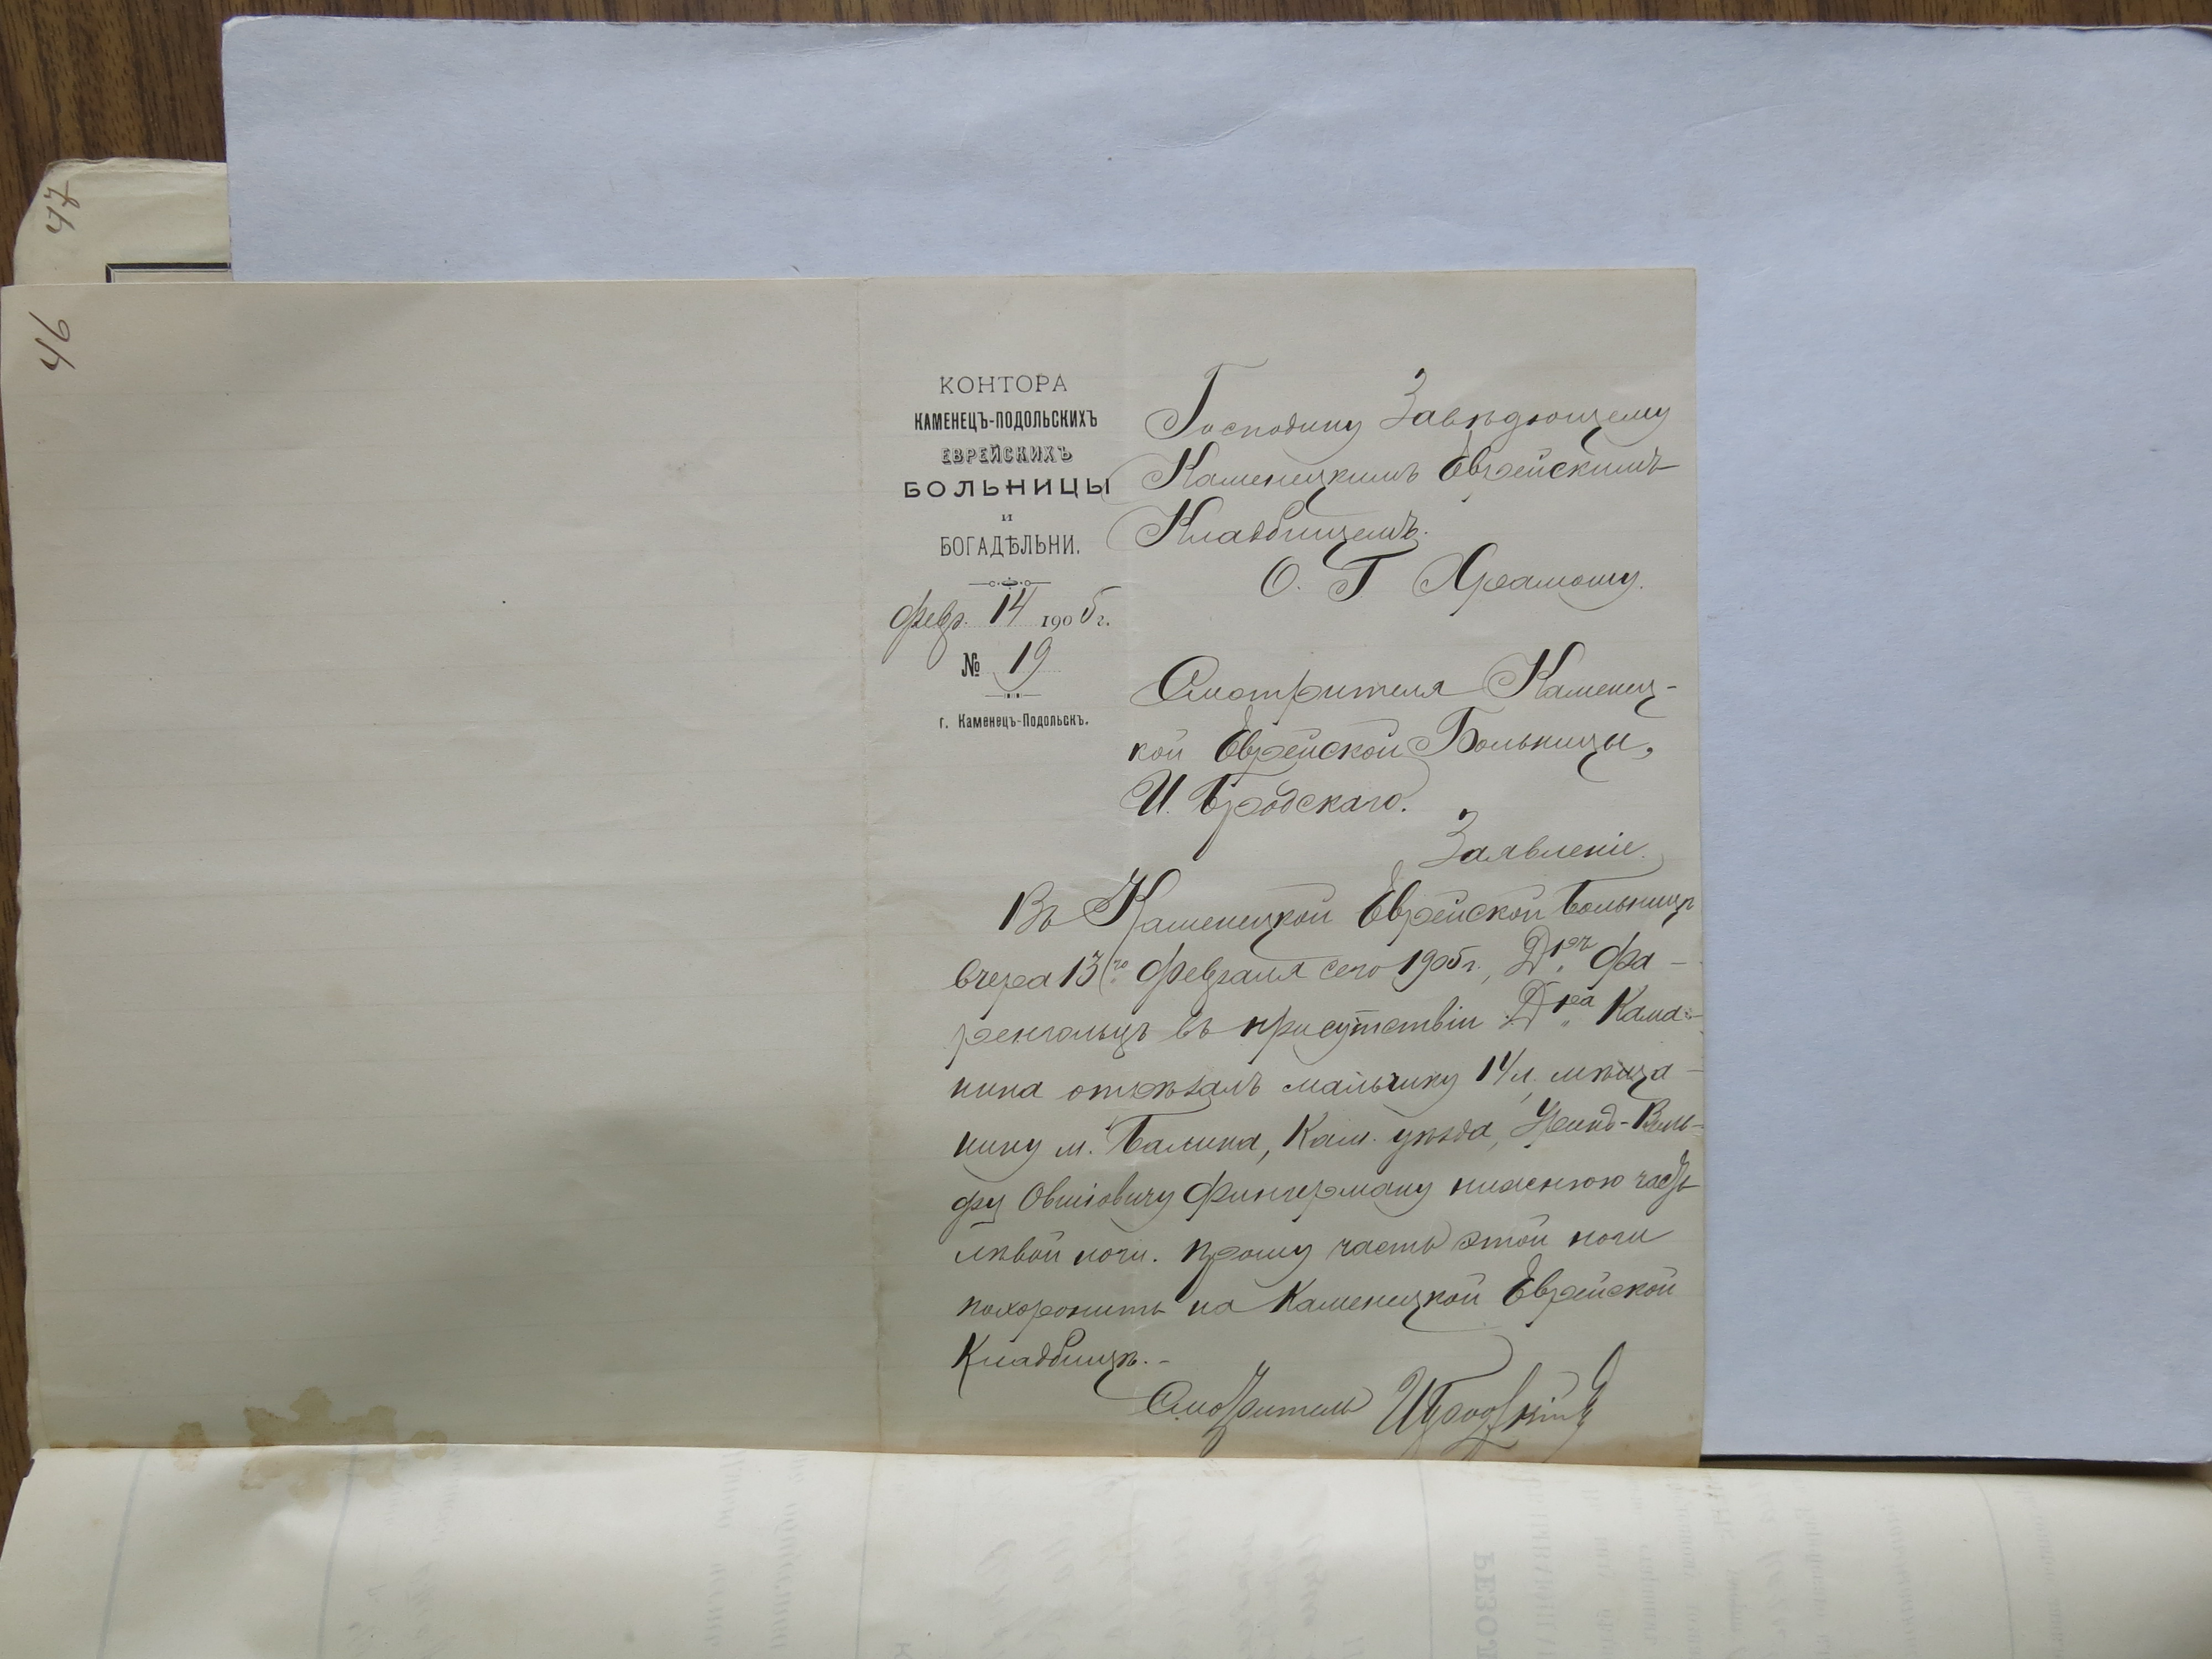 47
46
КОНТОРА
КАМЕНЕЦЪ-ПОДОЛЬСКИХЪ
ЕВРЕЙСКИХЪ
БОЛЬНИЦЫ
и
БОГАДѢЛЬНИ.
Февр. 14 1905 г.
№ 19
г. Каменецъ-Подольскъ.
Господину Завѣдующему
Каменецкимъ Еврейскимъ
Кладбищемъ.
О. Г. Храмому.
Смотрителя Каменец-
кой Еврейской Больницы,
И. Бродскаго.
Заявленіе.
Въ Каменецкой Еврейской Больницѣ
вчера 13го Февраля сего 1905 г., Д-ръ Фа-
ренгольцъ въ присутствіи Д-ра Кама-
нина отрѣзалъ мальчику 14 л. мѣща-
нину м. Балина, Кам. уѣзда, -Воль-
фу Овшіовичу Фингерману нижнюю часть
лѣвой ноги. Прошу часть этой ноги
похоронить на Каменецкой Еврейской
Кладбищѣ.-
Смотритель ИБродскій